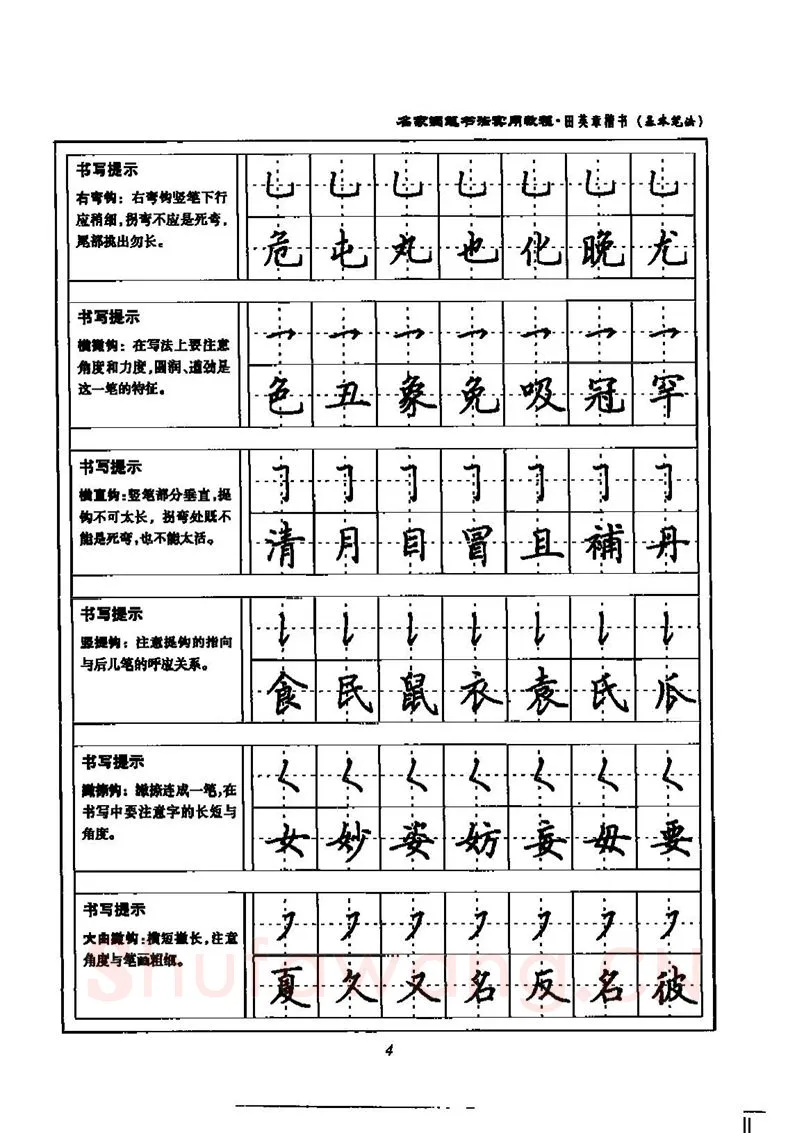 名家钢笔书法实用教程·田英章楷书（基本笔法）
书写提示
右弯钩：右弯钩竖笔下行
应稍细，拐弯不应是死弯，
尾部挑出勿长。
乚 乚 乚 乚 乚 乚 乚
危 屯 丸 也 化 晚 尤
书写提示
横撇钩：在写法上要注意
角度和力度，圆润、遒劲是
这一笔的特征。
乛 乛 乛 乛 乛 乛 乛
色 丑 象 免 吸 冠 罕
书写提示
横直钩：竖笔部分垂直，提
钩不可太长，拐弯处既不
能是死弯，也不能太活。
𠃌 𠃌 𠃌 𠃌 𠃌 𠃌 𠃌
清 月 目 冒 且 補 丹
书写提示
竖提钩：注意提钩的指向
与后儿笔的呼应关系。
𠄌 𠄌 𠄌 𠄌 𠄌 𠄌 𠄌
食 民 鼠 衣 袁 氏 瓜
书写提示
撇捺钩：撇捺连成一笔，在
书写中要注意字的长短与
角度。
𡿨 𡿨 𡿨 𡿨 𡿨 𡿨 𡿨
女 妙 姿 妨 妄 毋 要
书写提示
大曲撇钩：横短撇长，注意
角度与笔画粗细。
㇇ ㇇ ㇇ ㇇ ㇇ ㇇ ㇇
夏 久 又 名 反 名 彼
Shufawang.CN
4
II